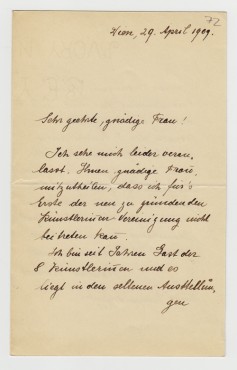 72
Wien, 29. April 1909.
Sehr geehrte, gnädige Frau!
Ich sehe mich leider veran,
lasst. Ihnen gnädige Frau,
mitzutheilen, dass ich für's
Erste der neu zu gründenden
Künstlerinen Vereinigung nicht
beitreten kan.
Ich bin seit Jahren Gast der
8 Künstlerinen und es
liegt in den seltenen Ausstellun,
gen